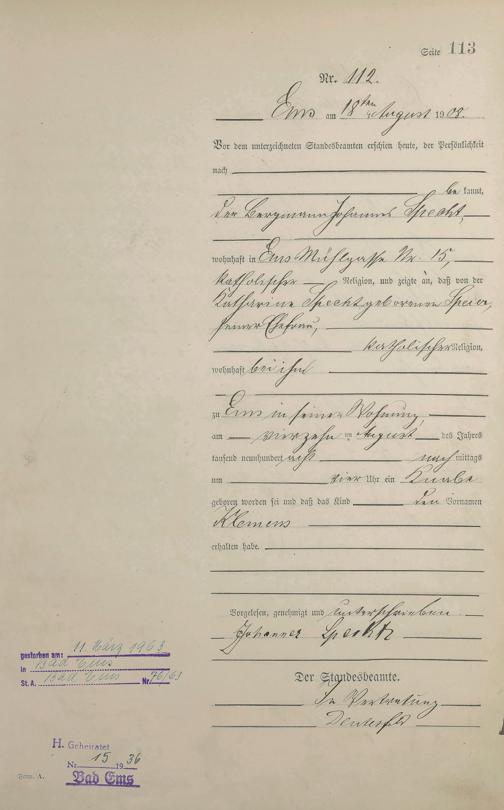 Seite 113
Nr. 112.
Ems am 18ten August 1908.
Vor dem unterzeichneten Standesbeamten erschien heute, der Persönlichkeit
nach
bekannt,
der Bergmann Johannes Specht,
wohnhaft in Ems Mühlgasse Nr. 15,
katholischer Religion, und zeigte an, daß von der
Katharine Specht geborenen Speier,
seiner Ehefrau,
katholischer Religion,
wohnhaft bei ihm
zu Ems in seiner Wohnung,
am vierzehn ten August des Jahres
tausend neunhundert acht nachmittags
um vier Uhr ein Knabe
geboren worden sei und daß das Kind den Vornamen
Klemens
erhalten habe.
Vorgelesen, genehmigt und unterschrieben
Johannes Specht
Der Standesbeamte.
In Vertretung
gestorben am: 11. März 1963
in Bad Ems
St. A. Bad Ems Nr. 76/63
H. Geheiratet
Nr. 15 1936
Bad Ems
Form. A.